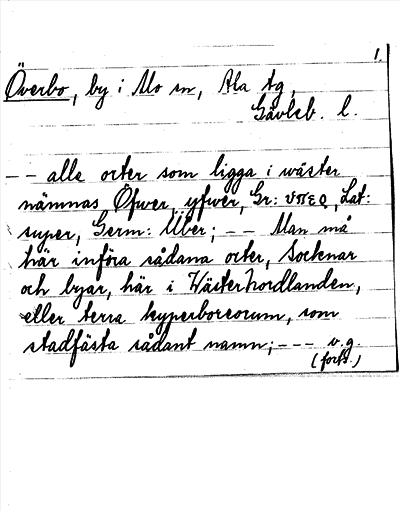 1.
Överbo, by i Mo sn, Ala tg,
Gävleb. l.
-- alle orter som ligga i wäster
nämnas Öfwer, yfwer, Gr: υπερ, Lat:
super, Germ: Über; -- Man må
här införa sådana orter, Socknar
och byar, här i Wästerhordlanden,
eller terra hyperboreorum, som
stadfästa sådant namn; --- v.g.
(forts.)